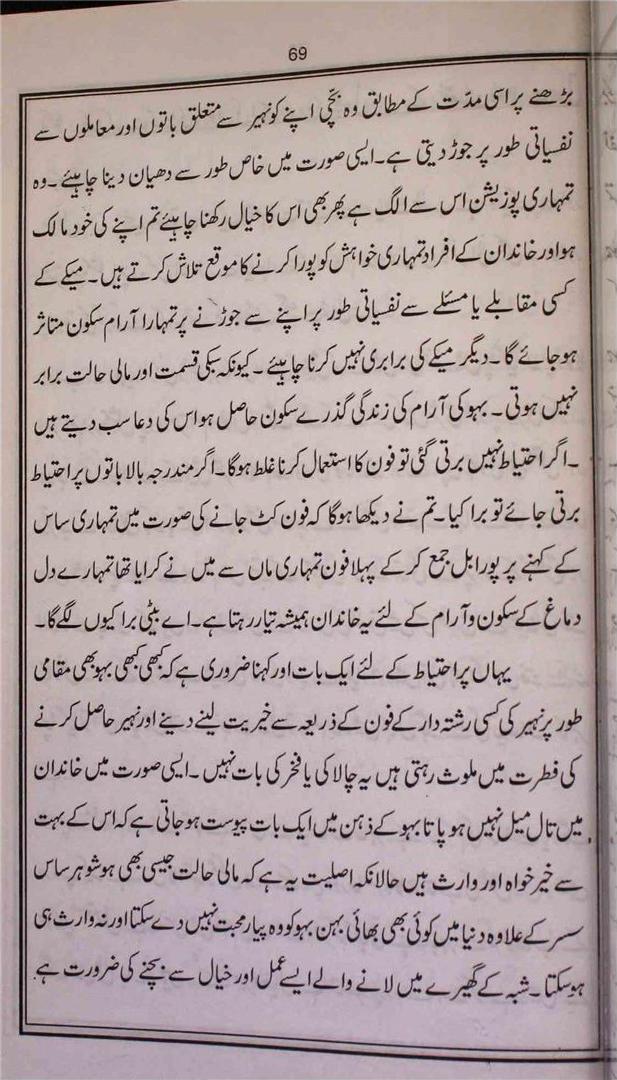 69
بڑھنے پر اسی مدّت کے مطابق وہ بچّی اپنے کو نہیر سے متعلق باتوں اور معاملوں سے
نفسیاتی طور پر جوڑ دیتی ہے۔ ایسی صورت میں خاص طور سے دھیان دینا چاہیئے ۔ وہ
تمہاری پوزیشن اس سے الگ ہے پھر بھی اس کا خیال رکھنا چاہیئے تم اپنے کی خود مالک
ہو اور خاندان کے افراد تمہاری خواہش کو پورا کرنے کا موقع تلاش کرتے ہیں۔ میکے کے
کسی مقابلے یا مسئلے سے نفسیاتی طور پر اپنے سے جوڑنے پر تمہارا آرام سکون متاثر
ہو جائے گا۔ دیگر میکے کی برابری نہیں کرنا چاہیئے ۔ کیونکہ سبکی قسمت اور مالی حالت برابر
نہیں ہوتی ۔ بہو کی آرام کی زندگی گذرے سکون حاصل ہو اس کی دعا سب دیتے ہیں
۔ اگر احتیاط نہیں برتی گئی تو فون کا استعمال کرنا غلط ہوگا۔ اگر مندرجہ بالا باتوں پر احتیاط
برتی جائے تو برا کیا۔ تم نے دیکھا ہوگا کہ فون کٹ جانے کی صورت میں تمہاری ساس
کے کہنے پر پورا بل جمع کر کے پہلا فون تمہاری ماں سے میں نے کرایا تھا تمہارے دل
دماغ کے سکون و آرام کے لئے یہ خاندان ہمیشہ تیار رہتا ہے۔ اے بیٹی برا کیوں لگے گا۔
یہاں پر احتیاط کے لئے ایک بات اور کہنا ضروری ہے کہ کبھی کبھی بہو بھی مقامی
طور پر نہیر کی کسی رشتہ دار کے فون کے ذریعہ سے خیریت لینے دینے اور نہیر حاصل کرنے
کی فطرت میں ملوث رہتی ہیں یہ چالاکی یا فخر کی بات نہیں ۔ ایسی صورت میں خاندان
میں تال میل نہیں ہو پاتا بہو کے ذہن میں ایک بات پیوست ہو جاتی ہے کہ اس کے بہت
سے خیر خواہ اور وارث ہیں حالانکہ اصلیت یہ ہے کہ مالی حالت جیسی بھی ہو شوہر ساس
سسر کے علاوہ دنیا میں کوئی بھی بھائی بہن بہو کو وہ پیار محبت نہیں دے سکتا اور نہ وارث ہی
ہو سکتا ۔ شبہ کے گھیرے میں لانے والے ایسے عمل اور خیال سے بچنے کی ضرورت ہے